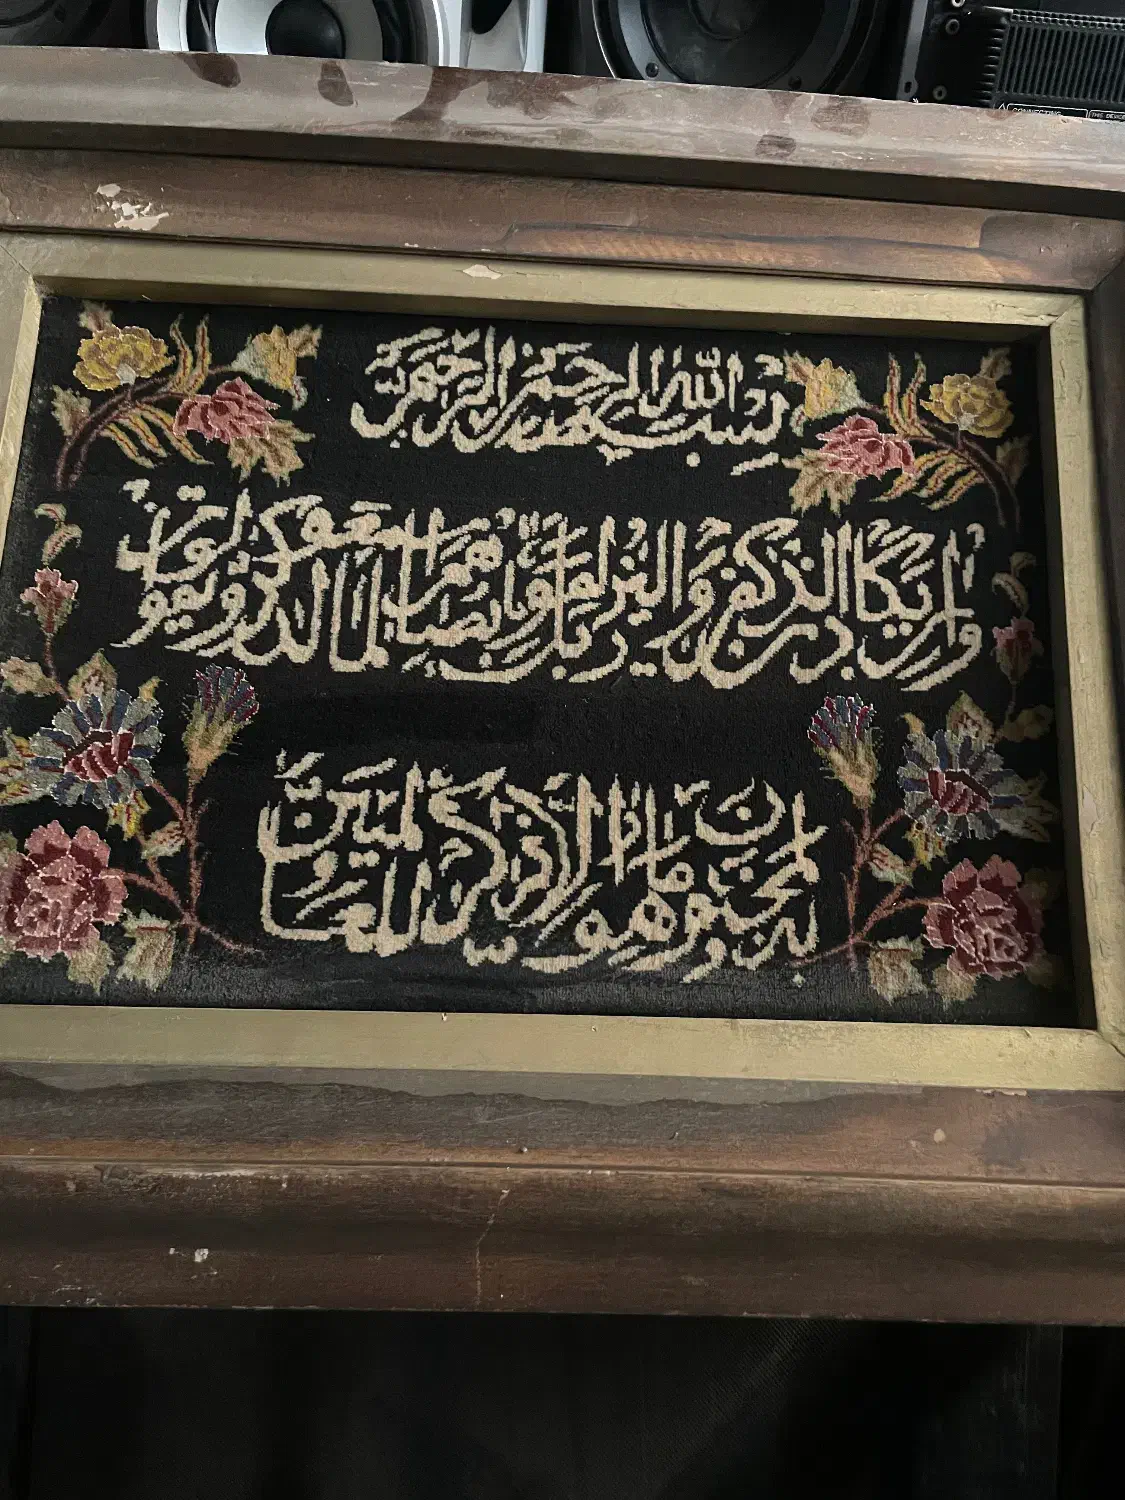 CONNECTING
THIS DEVICE
بسم الله الرحمن الرحيم
وإن يكاد الذين كفروا ليزلقونك بأبصارهم لما سمعوا الذكر ويقولون
إنه لمجنون وما هو إلا ذكر للعالمين